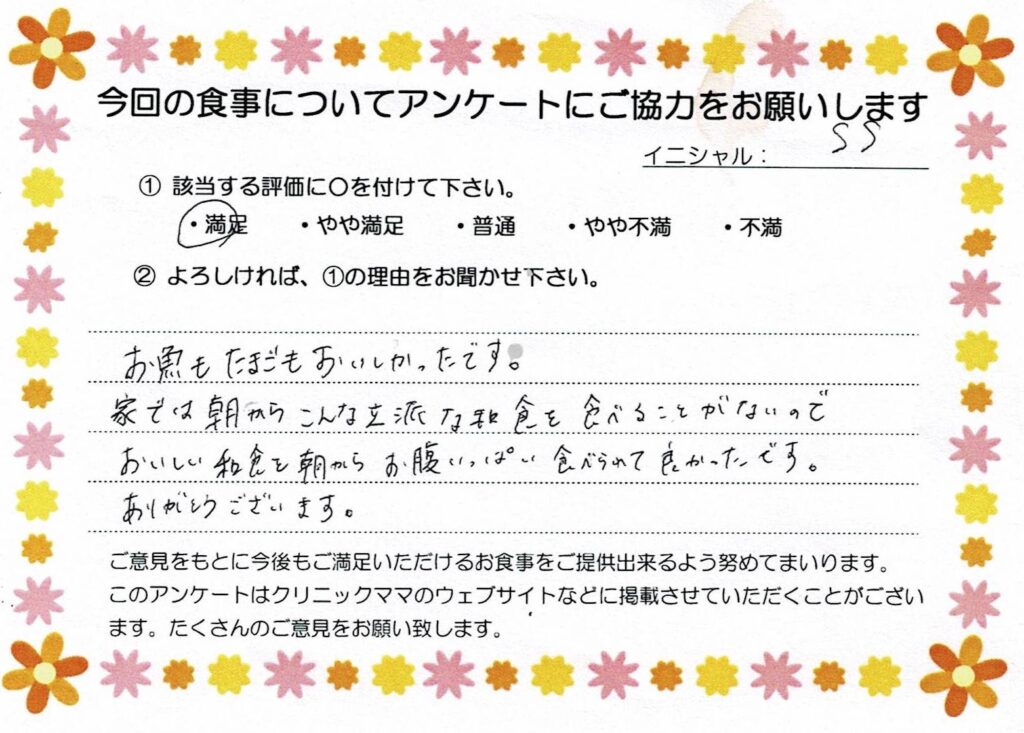 今回の食事についてアンケートにご協力をお願いします
イニシャル: SS
① 該当する評価に〇を付けて下さい。
・満足 ・やや満足 ・普通 ・やや不満 ・不満
② よろしければ、①の理由をお聞かせ下さい。
お魚もたまごもおいしかったです。
家では朝からこんな立派な和食を食べることがないので
おいしい和食を朝からお腹いっぱい食べられて良かったです。
ありがとうございます。
ご意見をもとに今後もご満足いただけるお食事をご提供出来るよう努めてまいります。
このアンケートはクリニックママのウェブサイトなどに掲載させていただくことがござい
ます。たくさんのご意見をお願い致します。